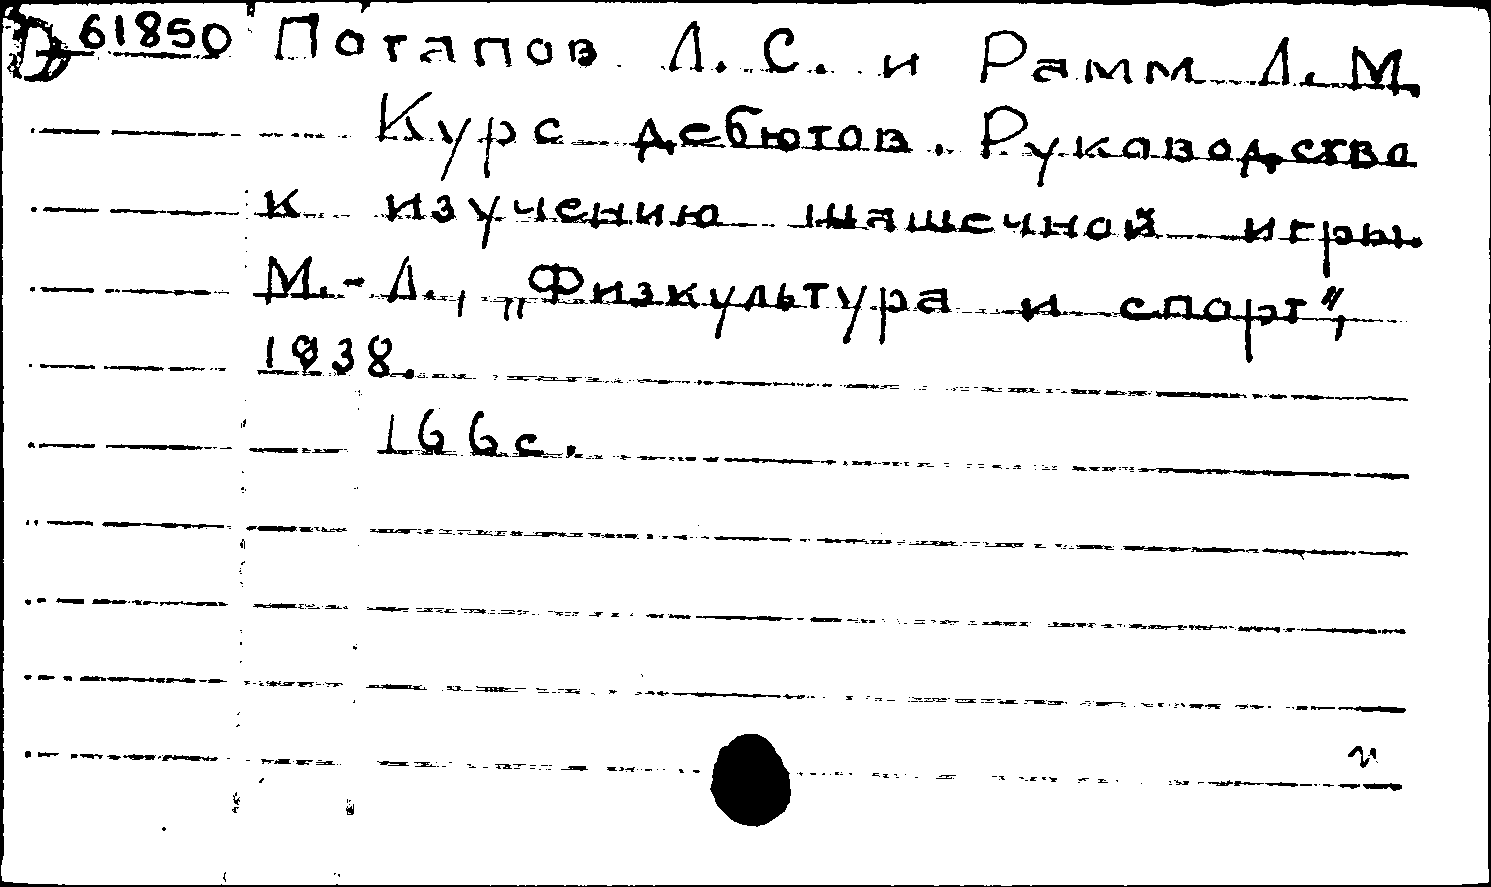 61850 Потапов Л. С. и Рамм Л. М.
Курс дебютов. Руководство
к изучению шашечной игры.
М.-Л., „Физкультура и спорт",
1938.
166 с.